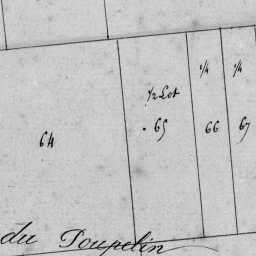 1/4 1/4
1/2 Lot
64 . 65 66 67
du Poupelin